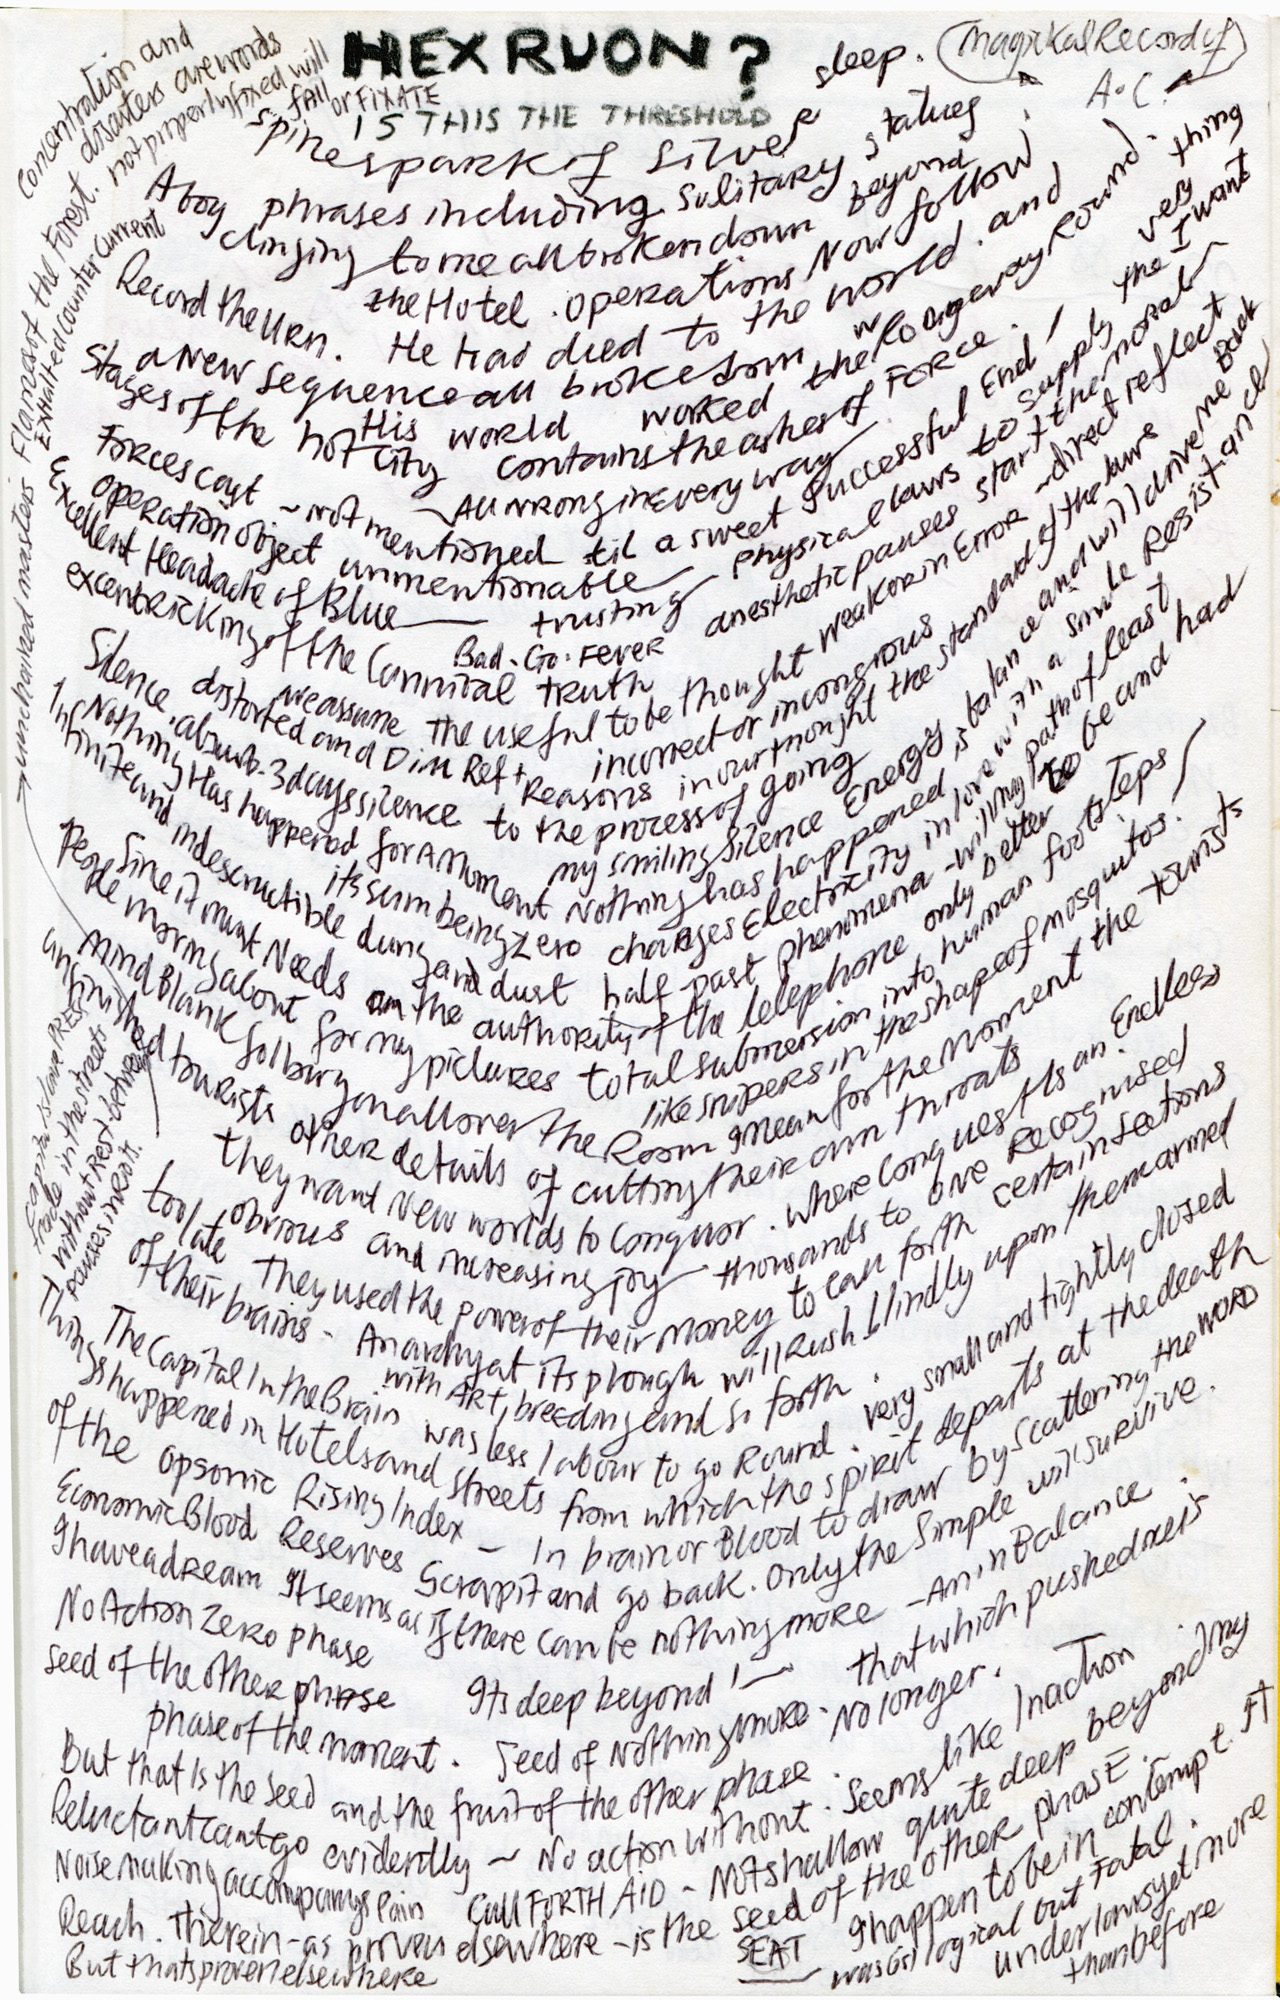 HEXRUON?
IS THIS THE THRESHOLD
sleep. Magickal Record of
A.C.
Concentration and
disasters are words
not properly fixed will
fall
or FIXATE
Flames of the forest.
Exhalted Counter Current
unchained masters
Spine spark of silver
A boy phrases including solitary statues
clinging to me all broken down beyond
the Hotel. Operations Now follow
Record the Urn. He had died to the world. and
a New sequence all broke down wrong way Round.
Stages of the hot City
His world worked the
contains the ashes of FORCE.
very thing
I want
Forces cast ~ not mentioned til a sweet successful End /
All wrong in every way
operation object unmentionable
physical laws to supply the
Excellent Headache of Blue trusting anesthetic pauses start the moral
excentric King of the Carnival truth
Bad. Go. FEVER
we assume the useful to be thought weak or in Error ~ direct reflect
Silence. absurb. 3 days silence
distorted and Dim Ref+
incorrect or incongrous
Reasons in our thought the standard of the lure
to the process of going
balance and will drive me Back
Nothing Has happened for a Moment
my smiling silence Energy is
Nothing has happened in love with a simple Resistance
Infinite and indescructible dung and dust
its sum being Zero charges Electricity
half past phenomena - willing path of least
Since it must Needs on the authority of the telephone only better to be and had
People moving about for my pictures total submersion into human footsteps /
like snipers in the shape of mosquitos.
Mind Blank
all over the Room I mean for the moment the tourists
unfinished tourists other details of cutting their own throats
they want New worlds to Conquor. Where Conquest Us an Endless
obvious and increasing joy thousands to one Recognised
too late They used the power of their money to call forth certain sections
of their brains - Anarchy at its plough will Rush blindly upon the unarmed
with ART, breeding and so forth.
The Capital In the Brain was less labour to go Round. very small and tightly closed
Things happened in Hotels and streets from which the spirit departs at the death
of the opsonic Rising Index - In brain or Blood to draw by scattering the WORD
Economic Blood Reserves Scrap it and go back. Only the Simple will survive.
I have a dream It seems as if there can be nothing more - An in Balance.
No Action Zero phase
Its deep beyond! - that which pushed
seed of the other phase
Seed of Nothing more. No longer.
phase of the moment.
But that Is the seed and the fruit of the other phase. Seems like Inaction
Reluctant cant go evidently ~ No action without. Not shallow quite deep beyond my
Noise making accompanys Pain Call FORTH AID - is the seed of the other phasE.
Reach. therein - as proven elsewhere
But thats proven elsewhere
SEAT
I happen to be in contempt. It
was Gil logical but Fatal.
under laws yet more
than before
Capital is slave
trade in the streets
without Rest between
pauses in